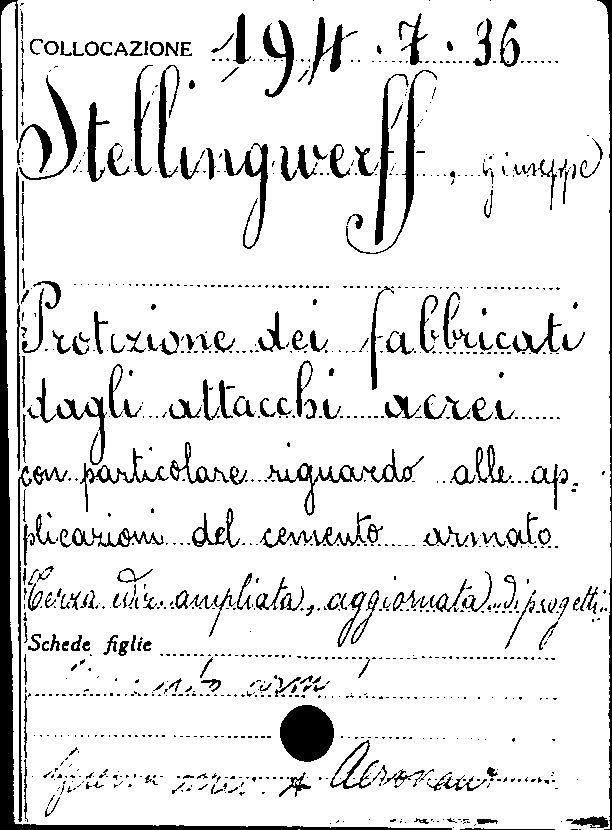 COLLOCAZIONE 194.7.36
Stellingwerff, Giuseppe
Protezione dei fabbricati
dagli attacchi aerei
con particolare riguardo alle ap=
plicazioni del cemento armato
Terza ediz. ampliata, aggiornata di progetti
Schede figlie